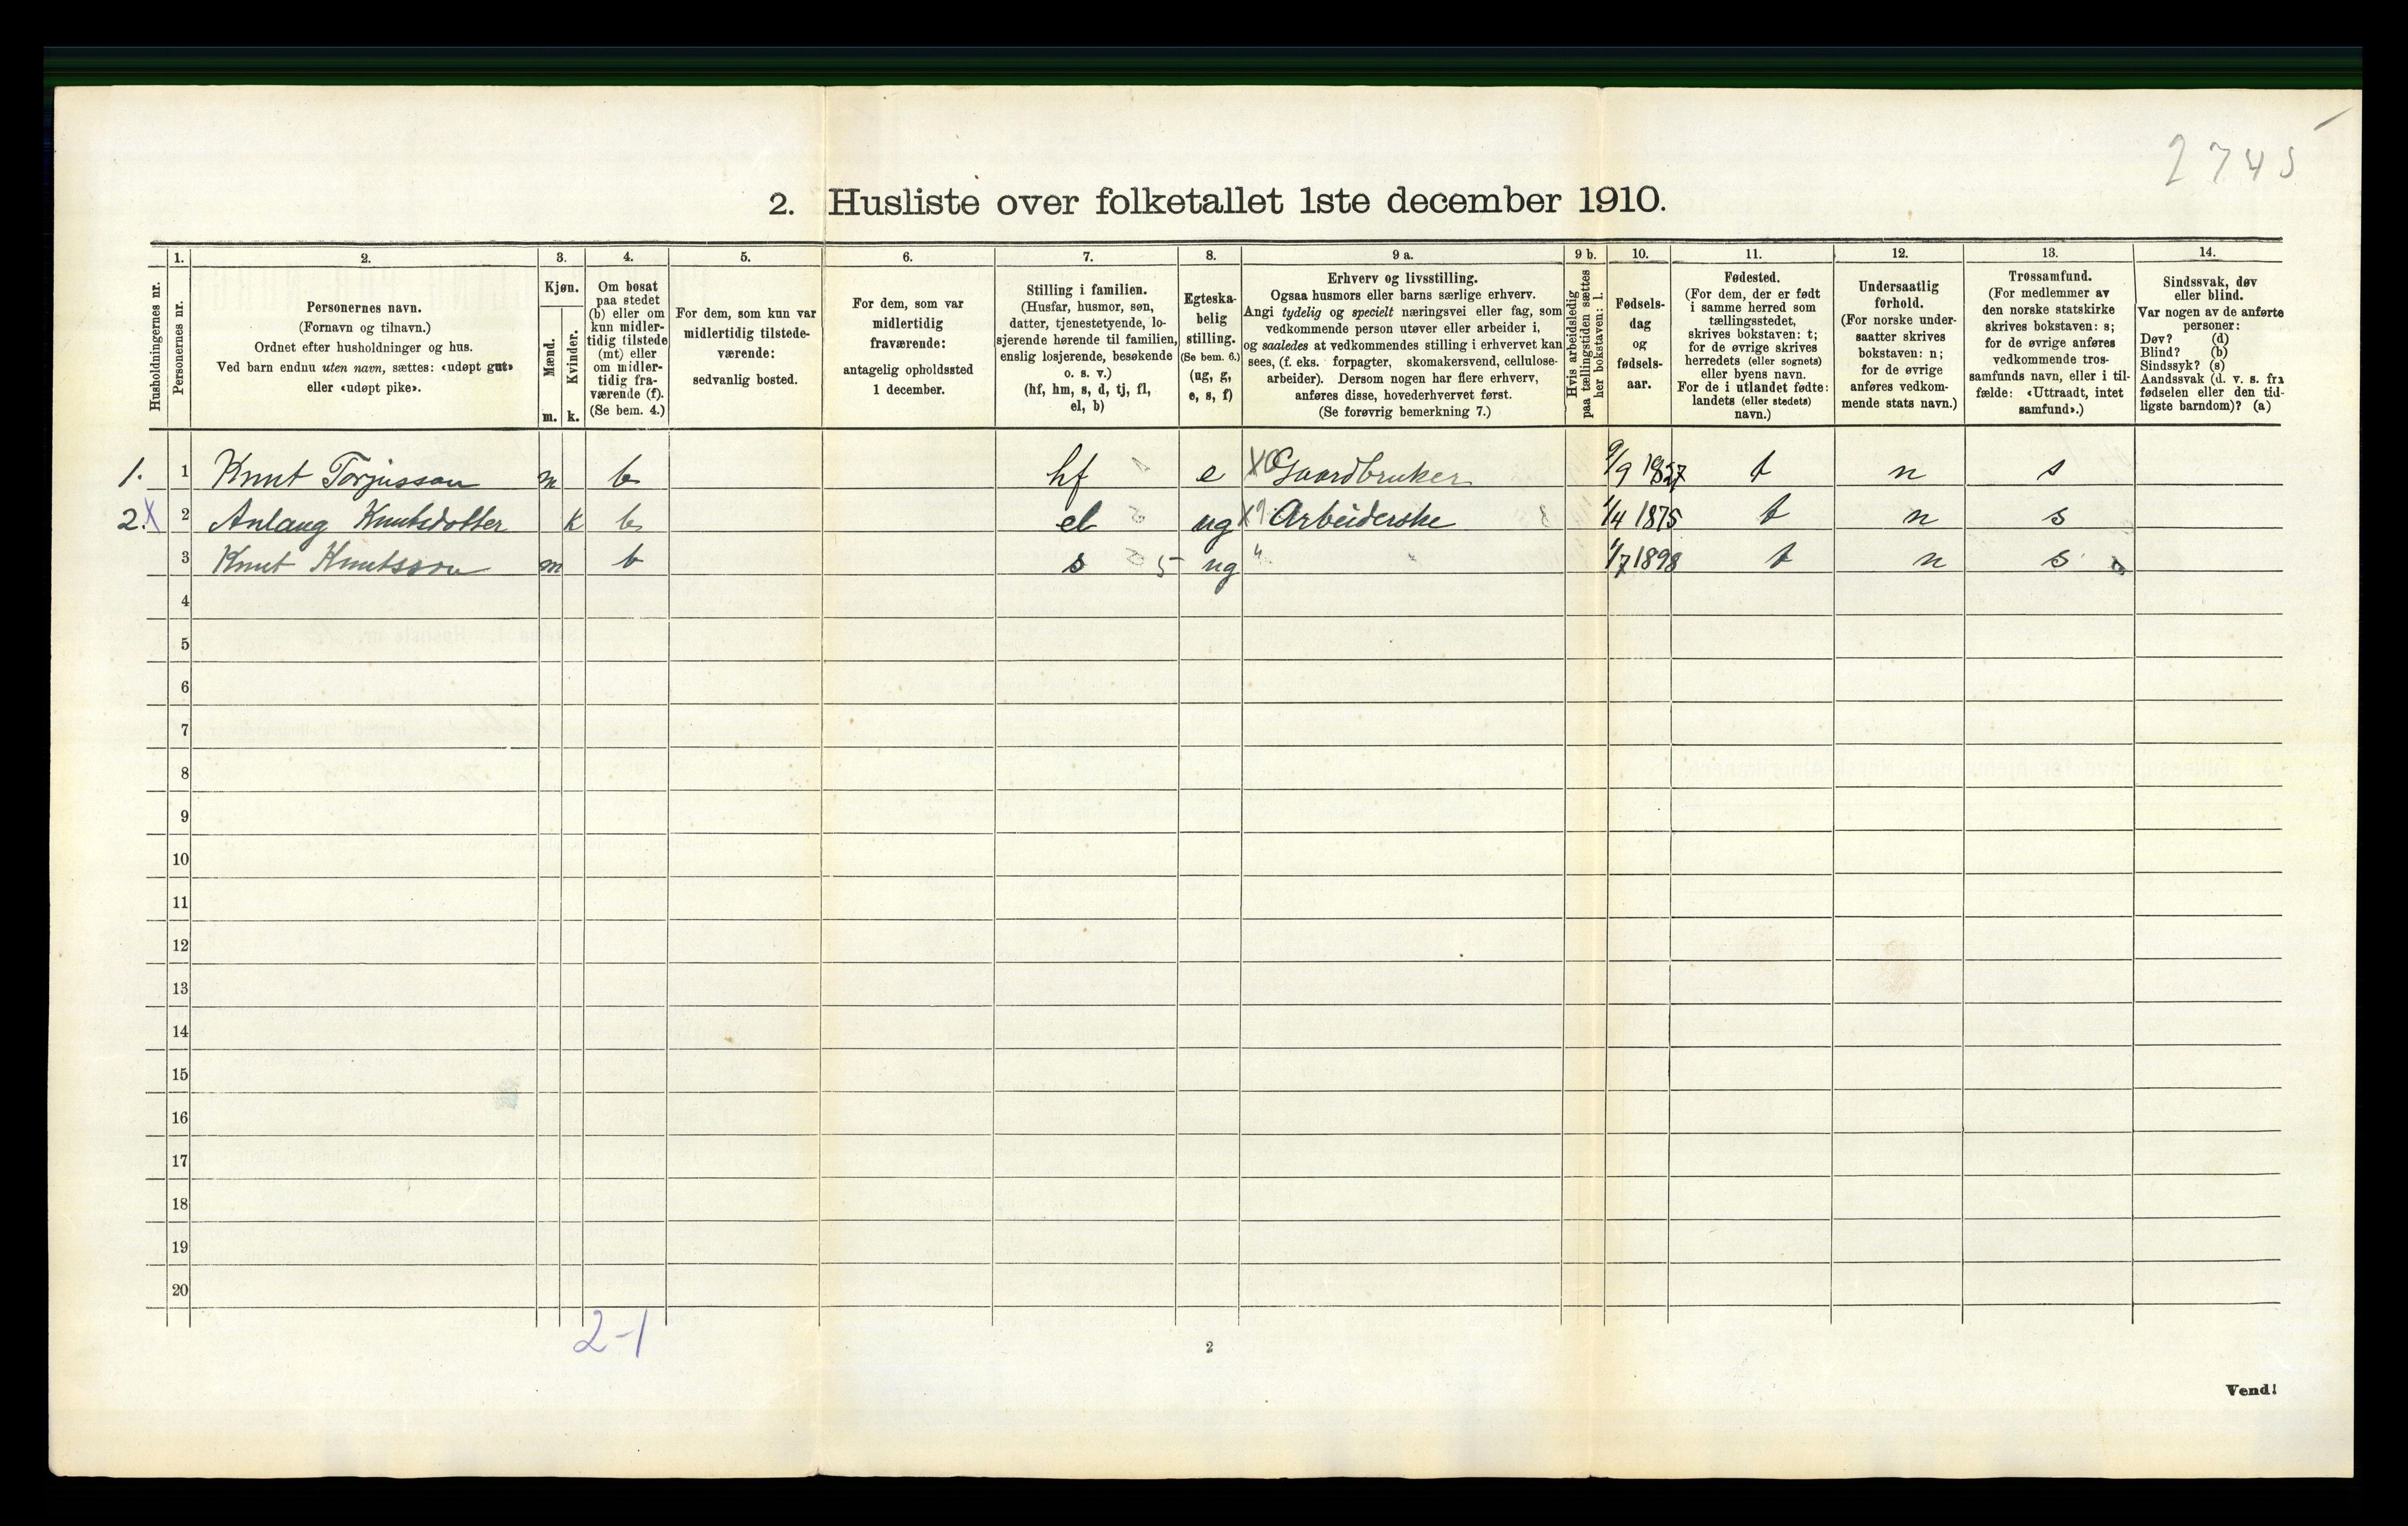 2745
2. Husliste over folketallet 1ste december 1910.
Husholdningernes nr.
1.
Personernes nr.
2.
Personernes navn.
(Fornavn og tilnavn.)
Ordnet efter husholdninger og hus.
Ved barn endnu uten navn, sættes: «udøpt gut»
eller «udøpt pike».
3.
Kjøn.
Mænd.
Kvinder.
m. k.
4.
Om bosat
paa stedet
(b) eller om
kun midler-
tidig tilstede
(mt) eller
om midler-
tidig fra-
værende (f).
(Se bem. 4.)
5.
For dem, som kun var
midlertidig tilstede-
værende:
sedvanlig bosted.
6.
For dem, som var
midlertidig
fraværende:
antagelig opholdssted
1 december.
7.
Stilling i familien.
(Husfar, husmor, søn,
datter, tjenestetyende, lo-
sjerende hørende til familien,
enslig losjerende, besøkende
o. s. v.)
(hf, hm, s, d, tj, fl,
el, b)
8.
Egteska-
belig
stilling.
(Se bem. 6.)
(ug, g,
e, s, f)
9 a.
Erhverv og livsstilling.
Ogsaa husmors eller barns særlige erhverv.
Angi tydelig og specielt næringsvei eller fag, som
vedkommende person utøver eller arbeider i,
og saaledes at vedkommendes stilling i erhvervet kan
sees, (f. eks. forpagter, skomakersvend, cellulose-
arbeider). Dersom nogen har flere erhverv,
anføres disse, hovederhvervet først.
(Se forøvrig bemerkning 7.)
9 b.
Hvis arbeidsledig
paa tællingstiden sættes
her bokstaven: l.
10.
Fødsels-
dag
og
fødsels-
aar.
11.
Fødested.
(For dem, der er født
i samme herred som
tællingsstedet,
skrives bokstaven: t;
for de øvrige skrives
herredets (eller sognets)
eller byens navn.
For de i utlandet fødte:
landets (eller stedets)
navn.)
12.
Undersaatlig
forhold.
(For norske under-
saatter skrives
bokstaven: n;
for de øvrige
anføres vedkom-
mende stats navn.)
13.
Trossamfund.
(For medlemmer av
den norske statskirke
skrives bokstaven: s;
for de øvrige anføres
vedkommende tros-
samfunds navn, eller i til-
fælde: «Uttraadt, intet
samfund».)
14.
Sindssvak, døv
eller blind.
Var nogen av de anførte
personer:
Døv? (d)
Blind? (b)
Sindssyk? (s)
Aandssvak (d. v. s. fra
fødselen eller den tid-
ligste barndom)? (a)
1. 1 Knut Torjusson m b hf e Gaardbruker 9/9 1827 t n s
2. X 2 Anlaug Knutsdotter k b el ug Arbeiderske 1/4 1875 t n s
3 Knut Knutsson m b s 5 ug " 1/7 1898 t n s
4
5
6
7
8
9
10
11
12
13
14
15
16
17
18
19
20
2-1
2
Vend!